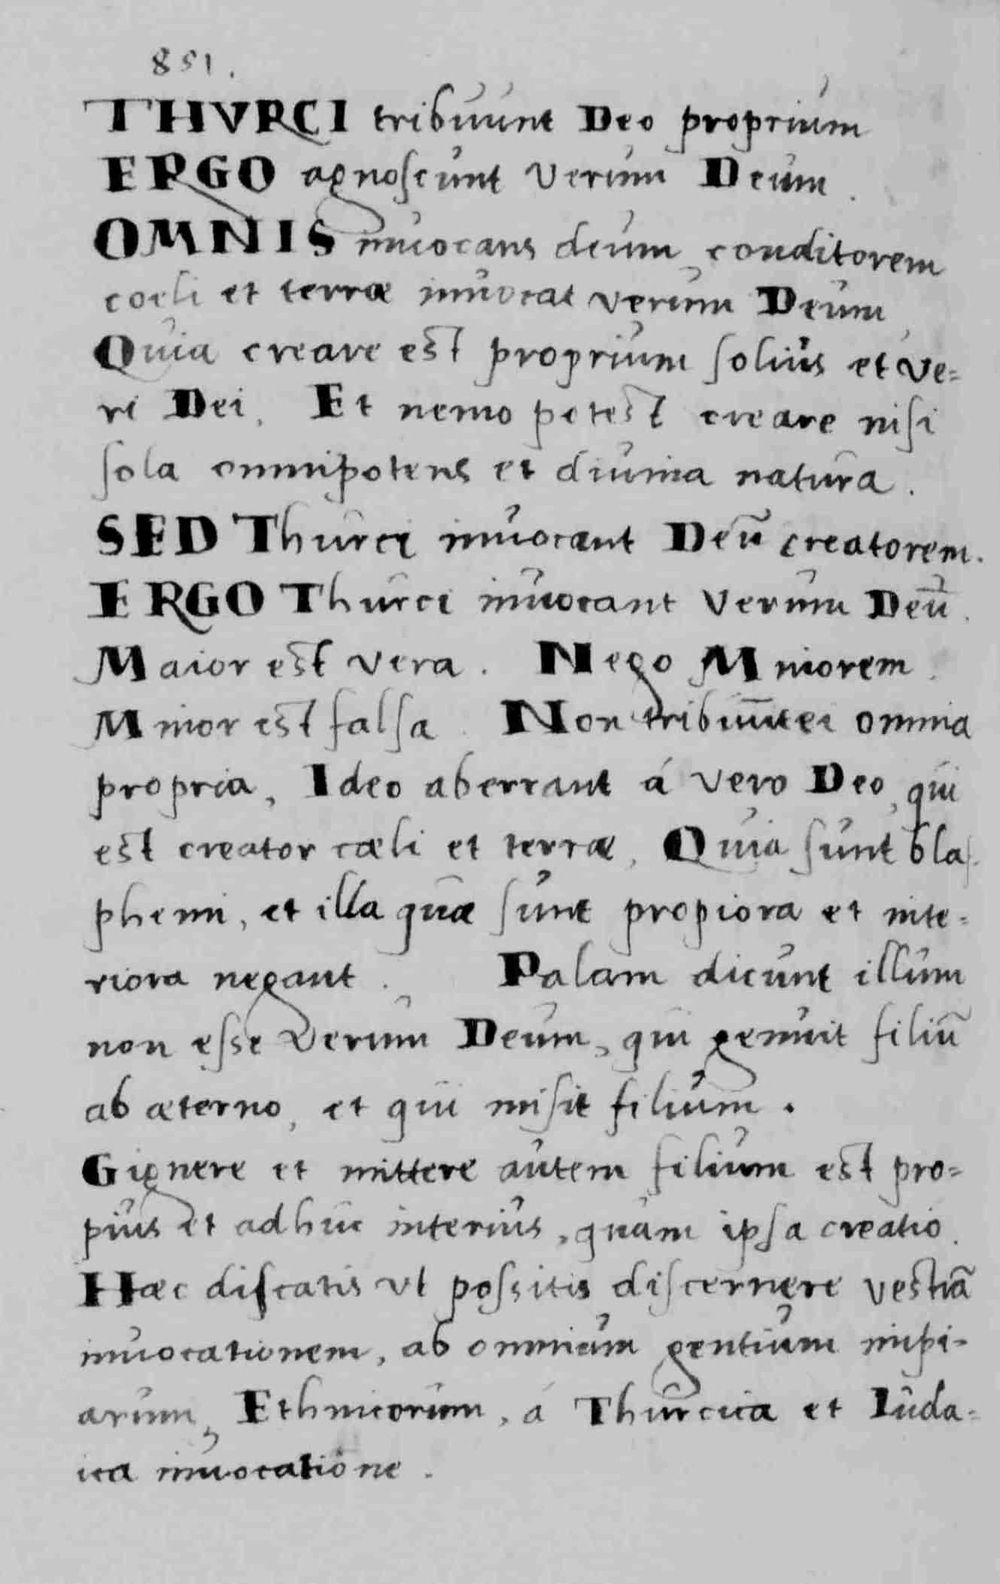 851.
THVRCI tribuunt Deo proprium
ERGO agnoscunt verum Deum.
OMNIS inuocans deum conditorem
coeli et terræ inuocat verum Deum
Quia creare est proprium solius et ve=
ri Dei. Et nemo potest creare nisi
sola omnipotens et diuina natura.
SED Thurci inuocant Deū creatorem.
ERGO Thurci inuocant verum Deū.
Maior est vera. Nego Minorem.
Minor est falsa. Non tribuūt ei omnia
propria, Ideo aberrant á vero Deo, qui
est creator cæli et terræ, Quia sunt blas-
phemi, et illa quæ sunt propiora et inte=
riora negant. Palam dicunt illum
non esse verum Deum, qui genuit filiū
ab æterno, et qui misit filium.
Gignere et mittere autem filium est pro=
pius et adhuc interius, quam ipsa creatio.
Hæc discatis vt possitis discernere vestrā
inuocationem, ab omnium gentium impi-
arum, Ethnicorum, á Thurcica et Iuda=
ica inuocatione.